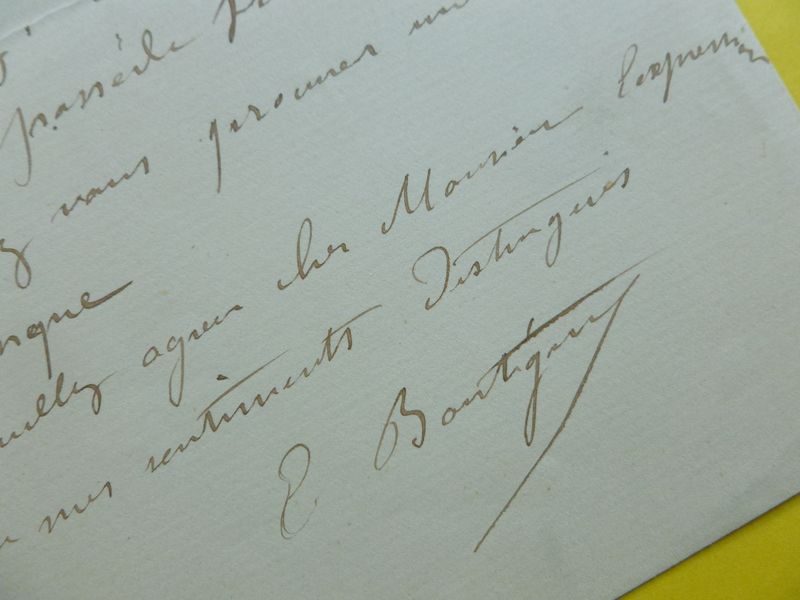 possède
vous procurer un
agréer cher Monsieur l'expression
mes sentiments distingués
E Boutigny